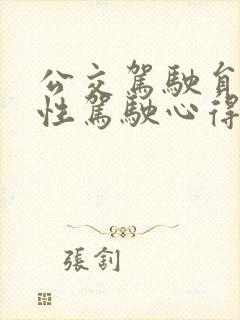 公交駕駛員
性駕駛心得
張釗